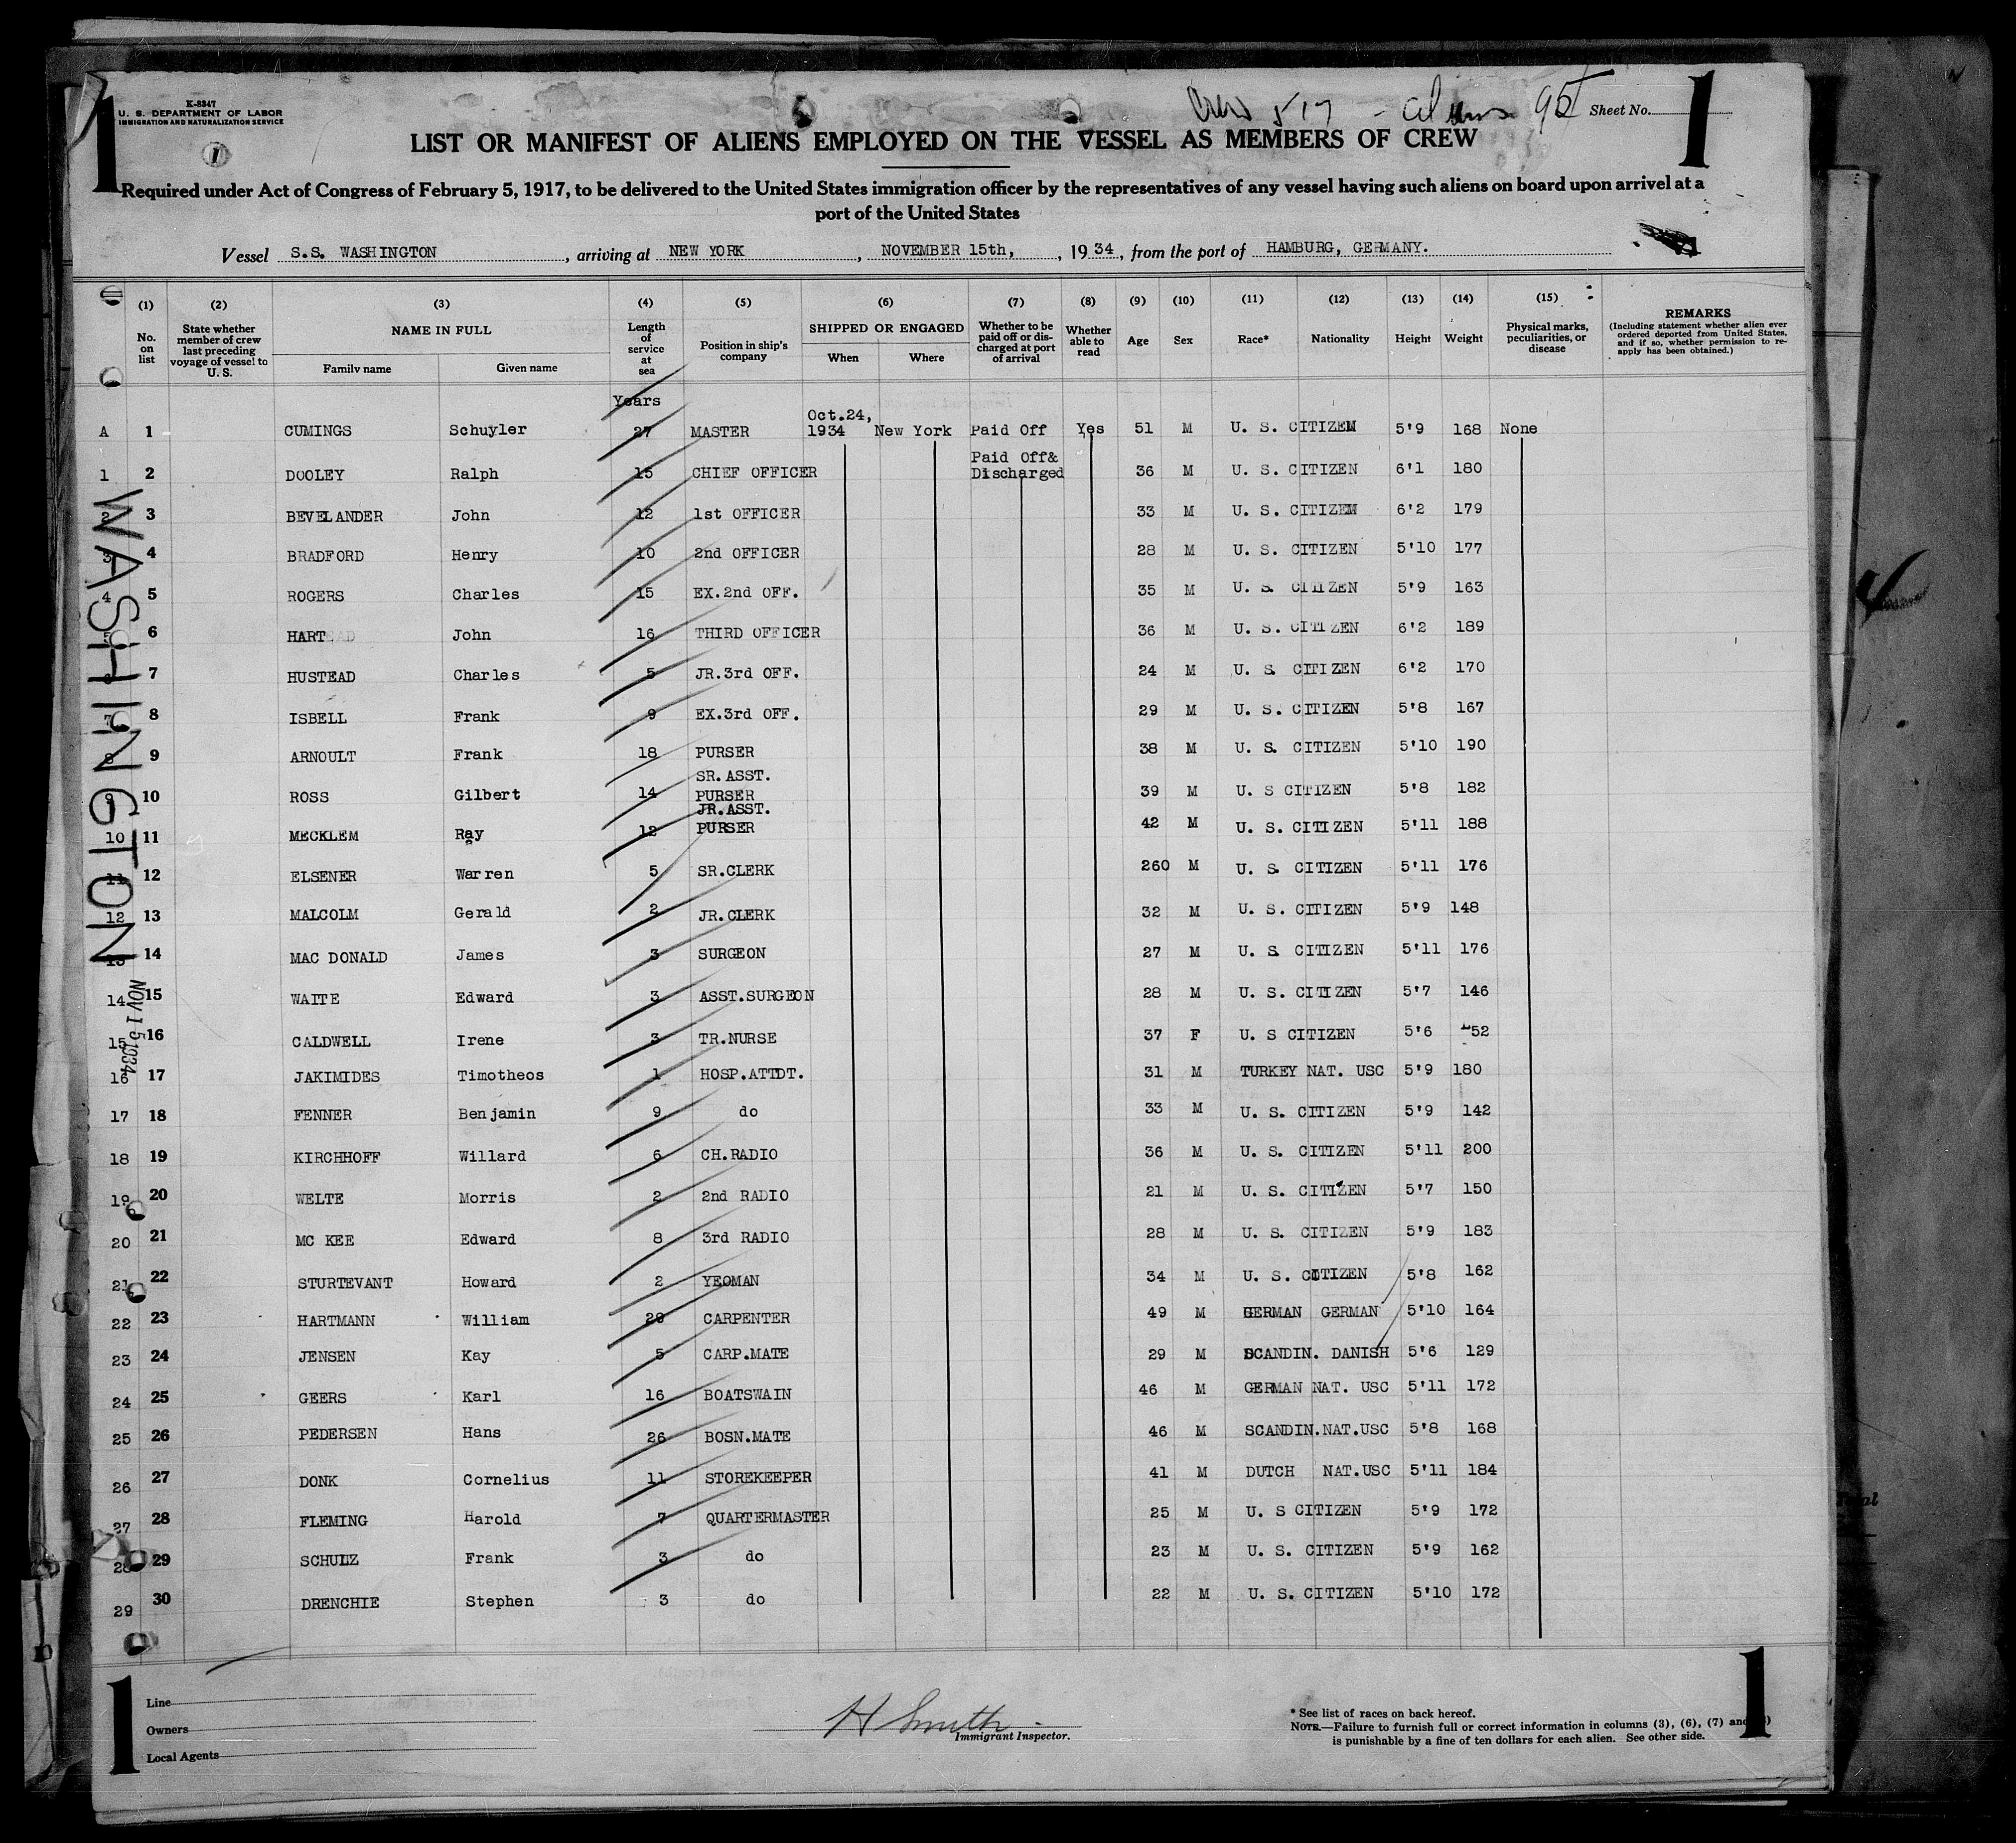 K-8347
U. S. DEPARTMENT OF LABOR
IMMIGRATION AND NATURALIZATION SERVICE
1
Crew 517 - Aliens 95
Sheet No.
1
LIST OR MANIFEST OF ALIENS EMPLOYED ON THE VESSEL AS MEMBERS OF CREW
Required under Act of Congress of February 5, 1917, to be delivered to the United States immigration officer by the representatives of any vessel having such aliens on board upon arrival at a
port of the United States
Vessel S.S. WASHINGTON, arriving at NEW YORK, NOVEMBER 15th, 1934, from the port of HAMBURG, GERMANY.
(1) (2) (3) (4) (5) (6) (7) (8) (9) (10) (11) (12) (13) (14) (15)
No. on list
State whether member of crew last preceding voyage of vessel to U. S.
NAME IN FULL
Family name Given name
Length of service at sea
Position in ship's company
SHIPPED OR ENGAGED
When Where
Whether to be paid off or discharged at port of arrival
Whether able to read
Age
Sex
Race*
Nationality
Height
Weight
Physical marks, peculiarities, or disease
REMARKS
(Including statement whether alien ever ordered deported from United States, and if so, whether permission to reapply has been obtained.)
Years
A 1 CUMINGS Schuyler 27 MASTER Oct.24, 1934 New York Paid Off Yes 51 M U. S. CITIZEN 5'9 168 None
1 2 DOOLEY Ralph 15 CHIEF OFFICER Paid Off& Discharged 36 M U. S. CITIZEN 6'1 180
2 3 BEVELANDER John 12 1st OFFICER 33 M U. S. CITIZEN 6'2 179
3 4 BRADFORD Henry 10 2nd OFFICER 28 M U. S. CITIZEN 5'10 177
4 5 ROGERS Charles 15 EX.2nd OFF. 35 M U. S. CITIZEN 5'9 163
5 6 HART John 16 THIRD OFFICER 36 M U. S. CITIZEN 6'2 189
7 HUSTEAD Charles 5 JR.3rd OFF. 24 M U. S. CITIZEN 6'2 170
7 8 ISBELL Frank 9 EX.3rd OFF. 29 M U. S. CITIZEN 5'8 167
8 9 ARNOULT Frank 18 PURSER 38 M U. S. CITIZEN 5'10 190
9 10 ROSS Gilbert 14 SR.ASST. PURSER 39 M U. S CITIZEN 5'8 182
10 11 MECKLEM Ray 12 JR.ASST. PURSER 42 M U. S. CITIZEN 5'11 188
11 12 ELSENER Warren 5 SR.CLERK 260 M U. S. CITIZEN 5'11 176
12 13 MALCOLM Gerald 2 JR.CLERK 32 M U. S. CITIZEN 5'9 148
13 14 MAC DONALD James 3 SURGEON 27 M U. S. CITIZEN 5'11 176
14 15 WAITE Edward 3 ASST.SURGEON 28 M U. S. CITIZEN 5'7 146
15 16 CALDWELL Irene 3 TR.NURSE 37 F U. S CITIZEN 5'6 52
16 17 JAKIMIDES Timotheos 1 HOSP.ATTDT. 31 M TURKEY NAT. USC 5'9 180
17 18 FENNER Benjamin 9 do 33 M U. S. CITIZEN 5'9 142
18 19 KIRCHHOFF Willard 6 CH.RADIO 36 M U. S. CITIZEN 5'11 200
19 20 WELTE Morris 2 2nd RADIO 21 M U. S. CITIZEN 5'7 150
20 21 MC KEE Edward 8 3rd RADIO 28 M U. S. CITIZEN 5'9 183
21 22 STURTEVANT Howard 2 YEOMAN 34 M U. S. CITIZEN 5'8 162
22 23 HARTMANN William 20 CARPENTER 49 M GERMAN GERMAN 5'10 164
23 24 JENSEN Kay 5 CARP.MATE 29 M SCANDIN. DANISH 5'6 129
24 25 GEERS Karl 16 BOATSWAIN 46 M GERMAN NAT. USC 5'11 172
25 26 PEDERSEN Hans 26 BOSN.MATE 46 M SCANDIN.NAT.USC 5'8 168
26 27 DONK Cornelius 11 STOREKEEPER 41 M DUTCH NAT.USC 5'11 184
27 28 FLEMING Harold 7 QUARTERMASTER 25 M U. S CITIZEN 5'9 172
28 29 SCHULZ Frank 3 do 23 M U. S. CITIZEN 5'9 162
29 30 DRENCHIE Stephen 3 do 22 M U. S. CITIZEN 5'10 172
WASHINGTON
NOV 15 1934
1
Line
Owners
Local Agents
H Smith
Immigrant Inspector.
* See list of races on back hereof.
NOTE.—Failure to furnish full or correct information in columns (3), (6), (7) and
is punishable by a fine of ten dollars for each alien. See other side.
1